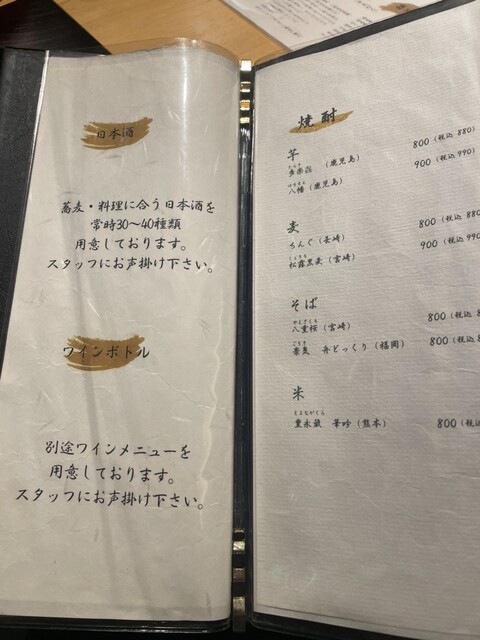 日本酒
蕎麦・料理に合う日本酒を
常時30〜40種類
用意しております。
スタッフにお声掛け下さい。
ワインボトル
別途ワインメニューを
用意しております。
スタッフにお声掛け下さい。
焼酎
芋
(鹿児島) 800 (税込 880)
はちまん
八幡 (鹿児島) 900 (税込 990)
麦
ちんぐ (長崎) 800 (税込 880
松露黒麦 (宮崎) 900 (税込 990
そば
やえざくら
八重桜 (宮崎) 800 (税込 8
弁どっくり (福岡) 800 (税込 8
米
とよながくら
豊永蔵 華吟 (熊本) 800 (税込